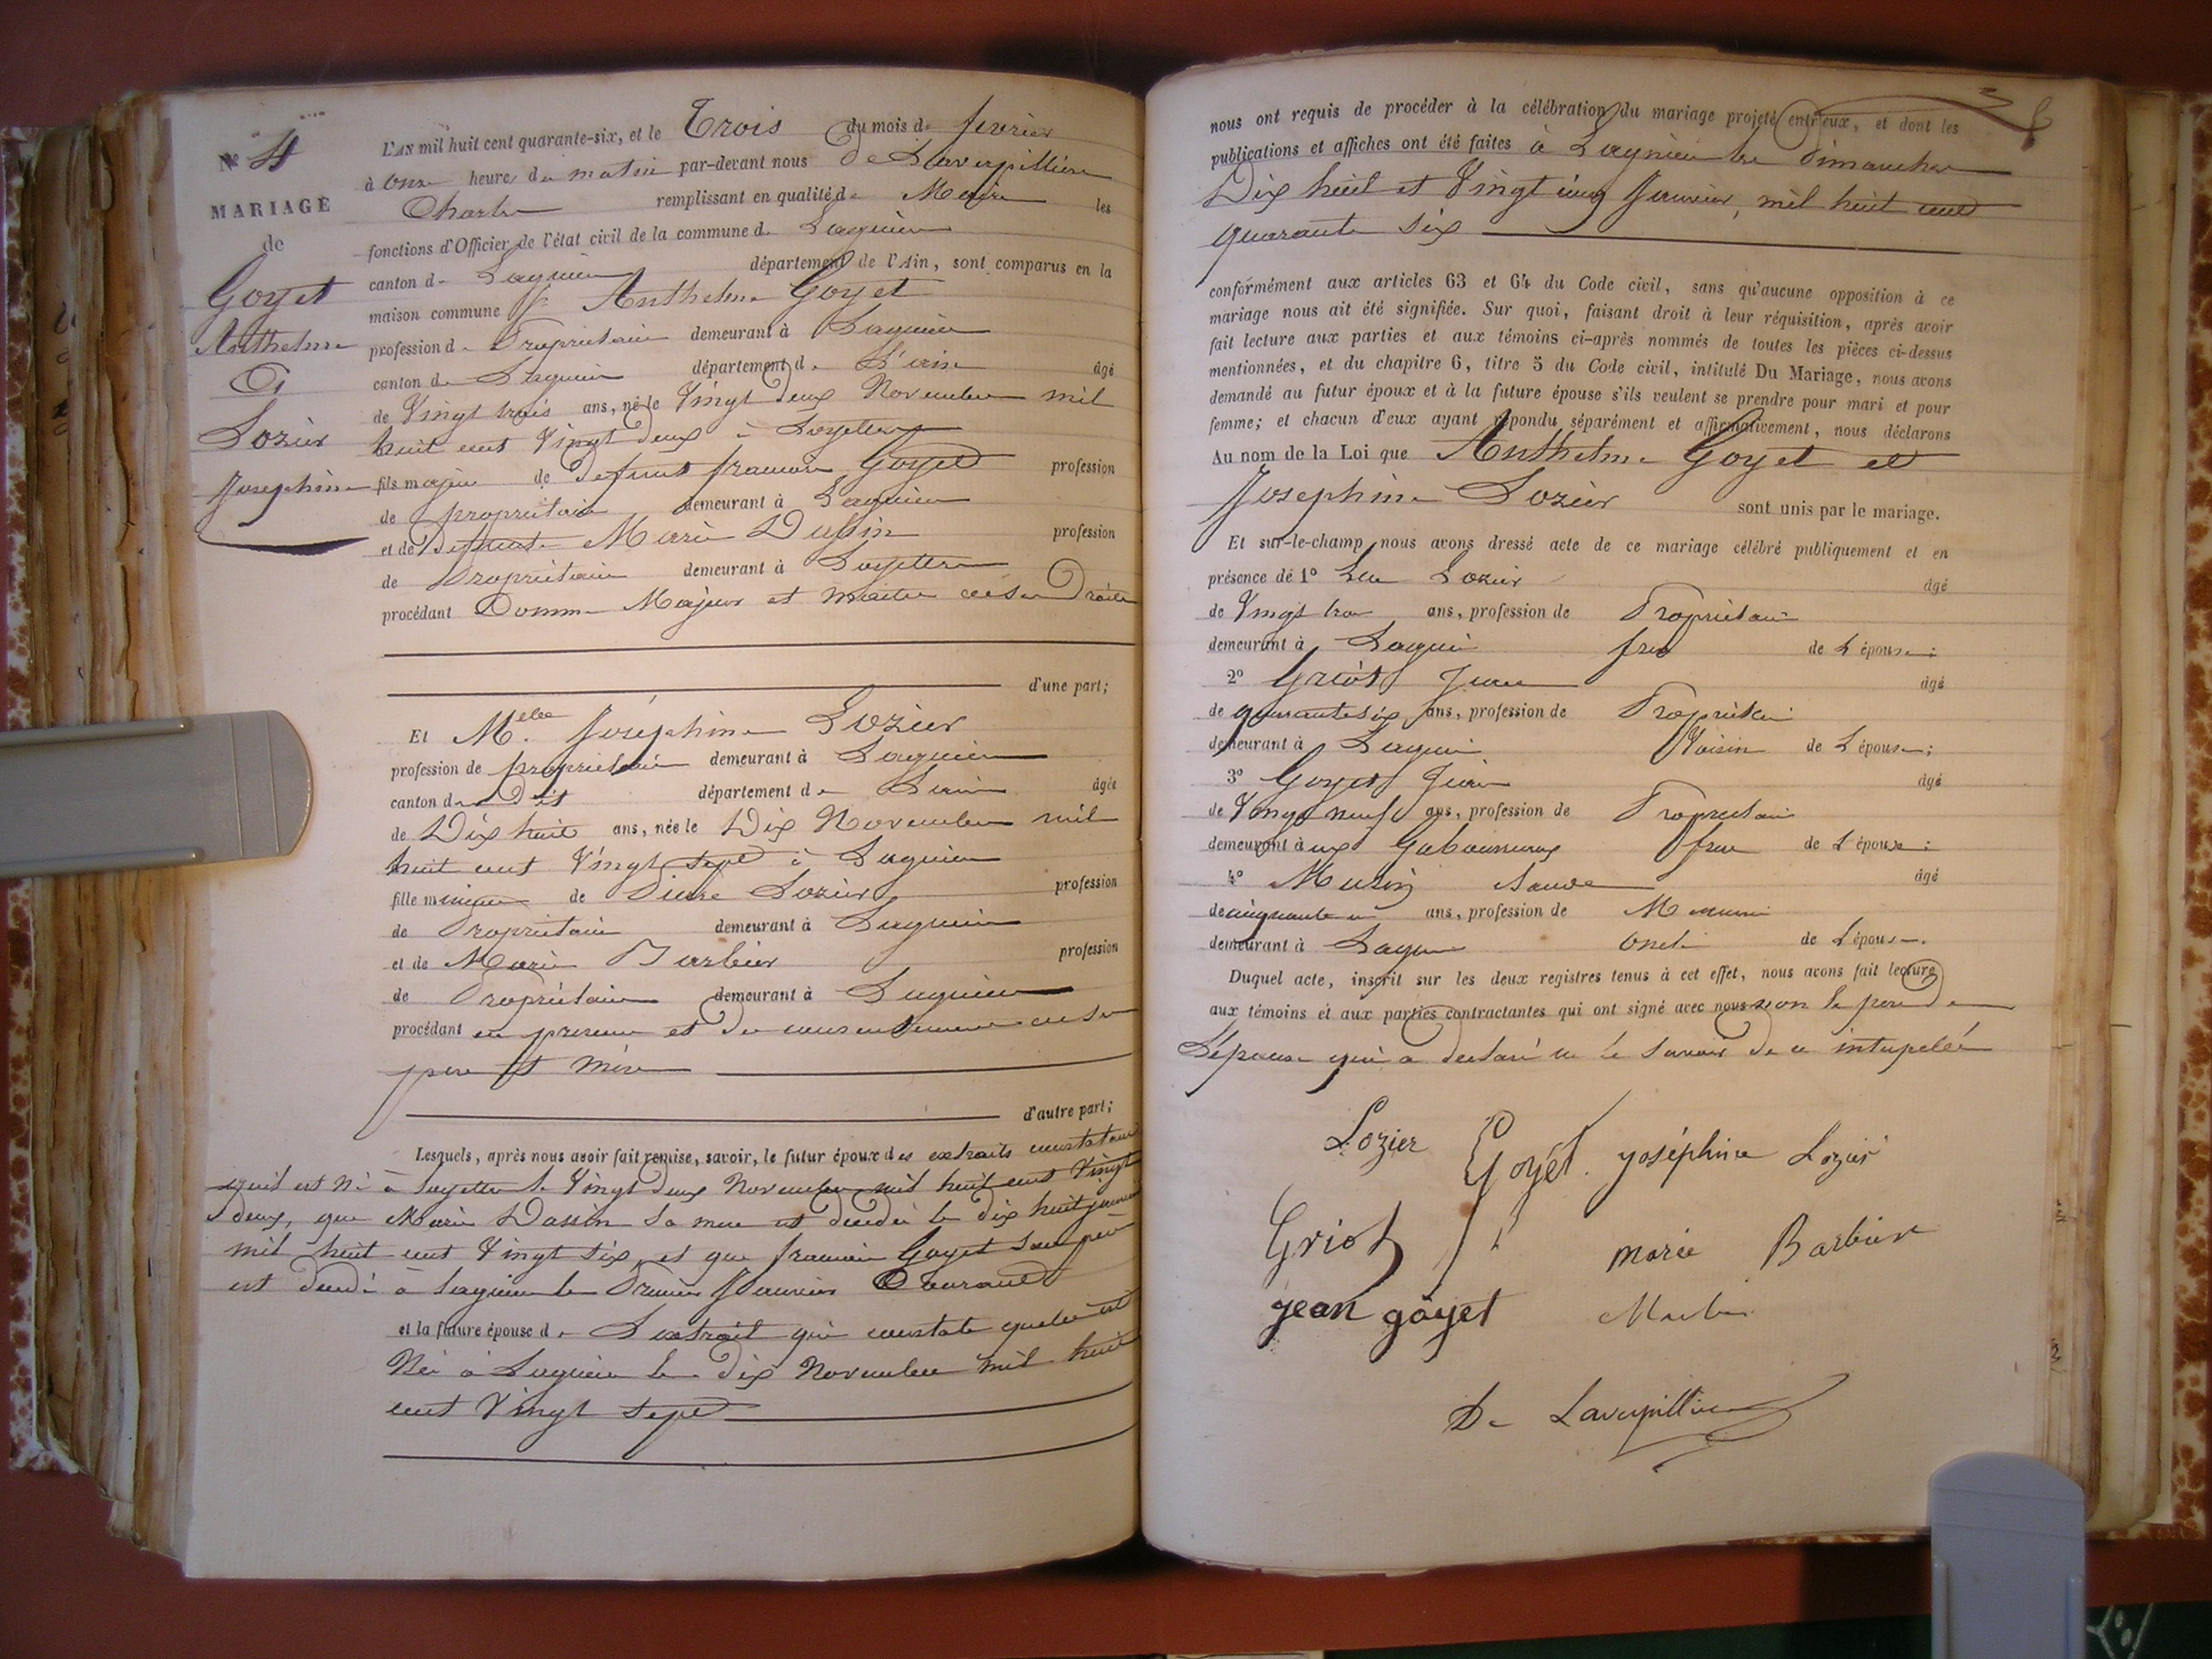 N° 4
MARIAGE
de
Goyet
Anthelme
Et
Lozier
Josephine
L'AN mil huit cent quarante-six, et le Trois du mois de fevrier
à onze heures du matin par-devant nous De Laverpillière
Charles remplissant en qualité de Maire les
fonctions d'Officier de l'état civil de la commune de Lagnieu
canton de Lagnieu département de l'Ain, sont comparus en la
maison commune Anthelme Goyet
profession de Propriétaire demeurant à Lagnieu
canton de Lagnieu département de L'ain âgé
de Vingt trois ans, né le Vingt deux Novembre mil
huit cent Vingt deux à Loyettes
fils majeur de defunt francois Goyet profession
de propriétaire demeurant à Lagnieu
et de Defunte Marie profession
de Propriétaire demeurant à Loyettes
procédant Comme Majeur et maitre de ses Droits
d'une part;
Et Melle Joséphine Lozier
profession de propriétaire demeurant à Lagnieu
canton de dit département de Lain âgée
de Dix huit ans, née le Dix Novembre mil
huit cent Vingt sept à Lagnieu
fille mineure de Pierre Lozier profession
de Propriétaire demeurant à Lagnieu
et de Marie Barbier profession
de Propriétaire demeurant à Lagnieu
procédant en presence et du consentement de ses
pere et mère
d'autre part;
Lesquels, après nous avoir fait remise, savoir, le futur époux des extraits constatant
quil est né à Loyettes le Vingt deux Novembre mil huit cent Vingt
deux, que Marie Dassin sa mere est décédée le dix huit janvier
mil huit cent Vingt six, et que francois Goyet son pere
est décédé à Lagnieu le Premier Janvier Courant
et la future épouse de L'extrait qui constate quelle est
Née à Lagnieu le dix Novembre mil huit
cent Vingt sept
nous ont requis de procéder à la célébration du mariage projeté entr'eux, et dont les
publications et affiches ont été faites à Lagnieu les Dimanches
Dix huit et Vingt cinq Janvier, mil huit cent
quarante six
conformément aux articles 63 et 64 du Code civil, sans qu'aucune opposition à ce
mariage nous ait été signifiée. Sur quoi, faisant droit à leur réquisition, après avoir
fait lecture aux parties et aux témoins ci-après nommés de toutes les pièces ci-dessus
mentionnées, et du chapitre 6, titre 5 du Code civil, intitulé Du Mariage, nous avons
demandé au futur époux et à la future épouse s'ils veulent se prendre pour mari et pour
femme; et chacun d'eux ayant répondu séparément et affirmativement, nous déclarons
Au nom de la Loi que Anthelme Goyet et
Josephine Lozier sont unis par le mariage.
Et sur-le-champ nous avons dressé acte de ce mariage célébré publiquement et en
présence de 1° Lozier âgé
de Vingt ans, profession de Propriétaire
demeurant à Lagnieu frere de L'épouse;
2° Griot Jean âgé
de quarante six ans, profession de Propriétaire
demeurant à Lagnieu Voisin de L'épouse;
3° Goyet Jean âgé
de Vingt neuf ans, profession de Propriétaire
demeurant aux frere de L'époux;
4° âgé
de cinquante un ans, profession de
demeurant à Lagnieu oncle de L'épouse.
Duquel acte, inscrit sur les deux registres tenus à cet effet, nous avons fait lecture
aux témoins et aux parties contractantes qui ont signé avec nous non le pere de
L'épouse qui a declaré ne le savoir de ce interpelé
Lozier Goyet. joséphine Lozier
Griot marie Barbier
jean goyet
De Laverpillière